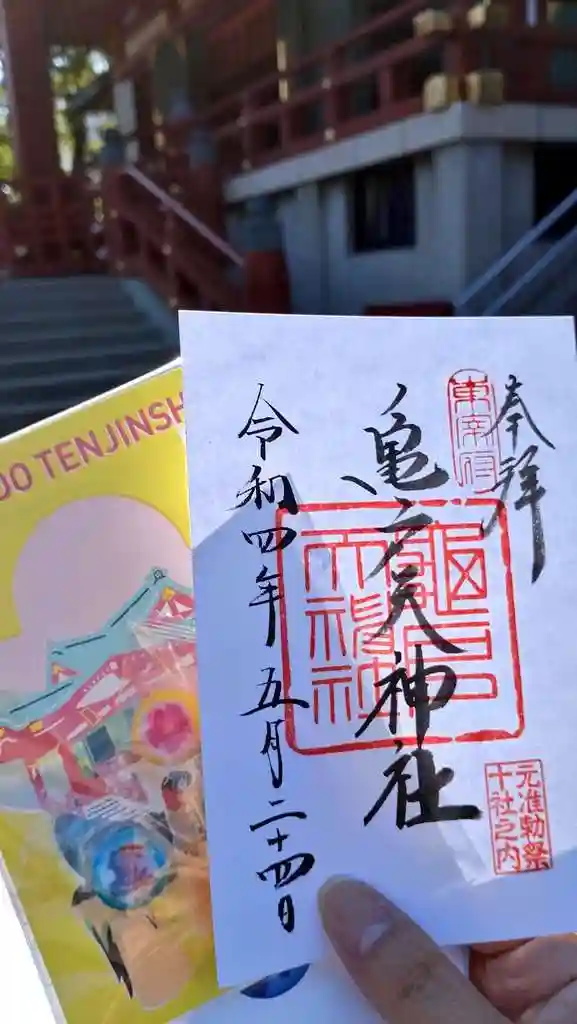 奉拝
東宰府
亀戸天神社
元准勅祭
十社之内
令和四年 五月 二十四日
DO TENJINSH